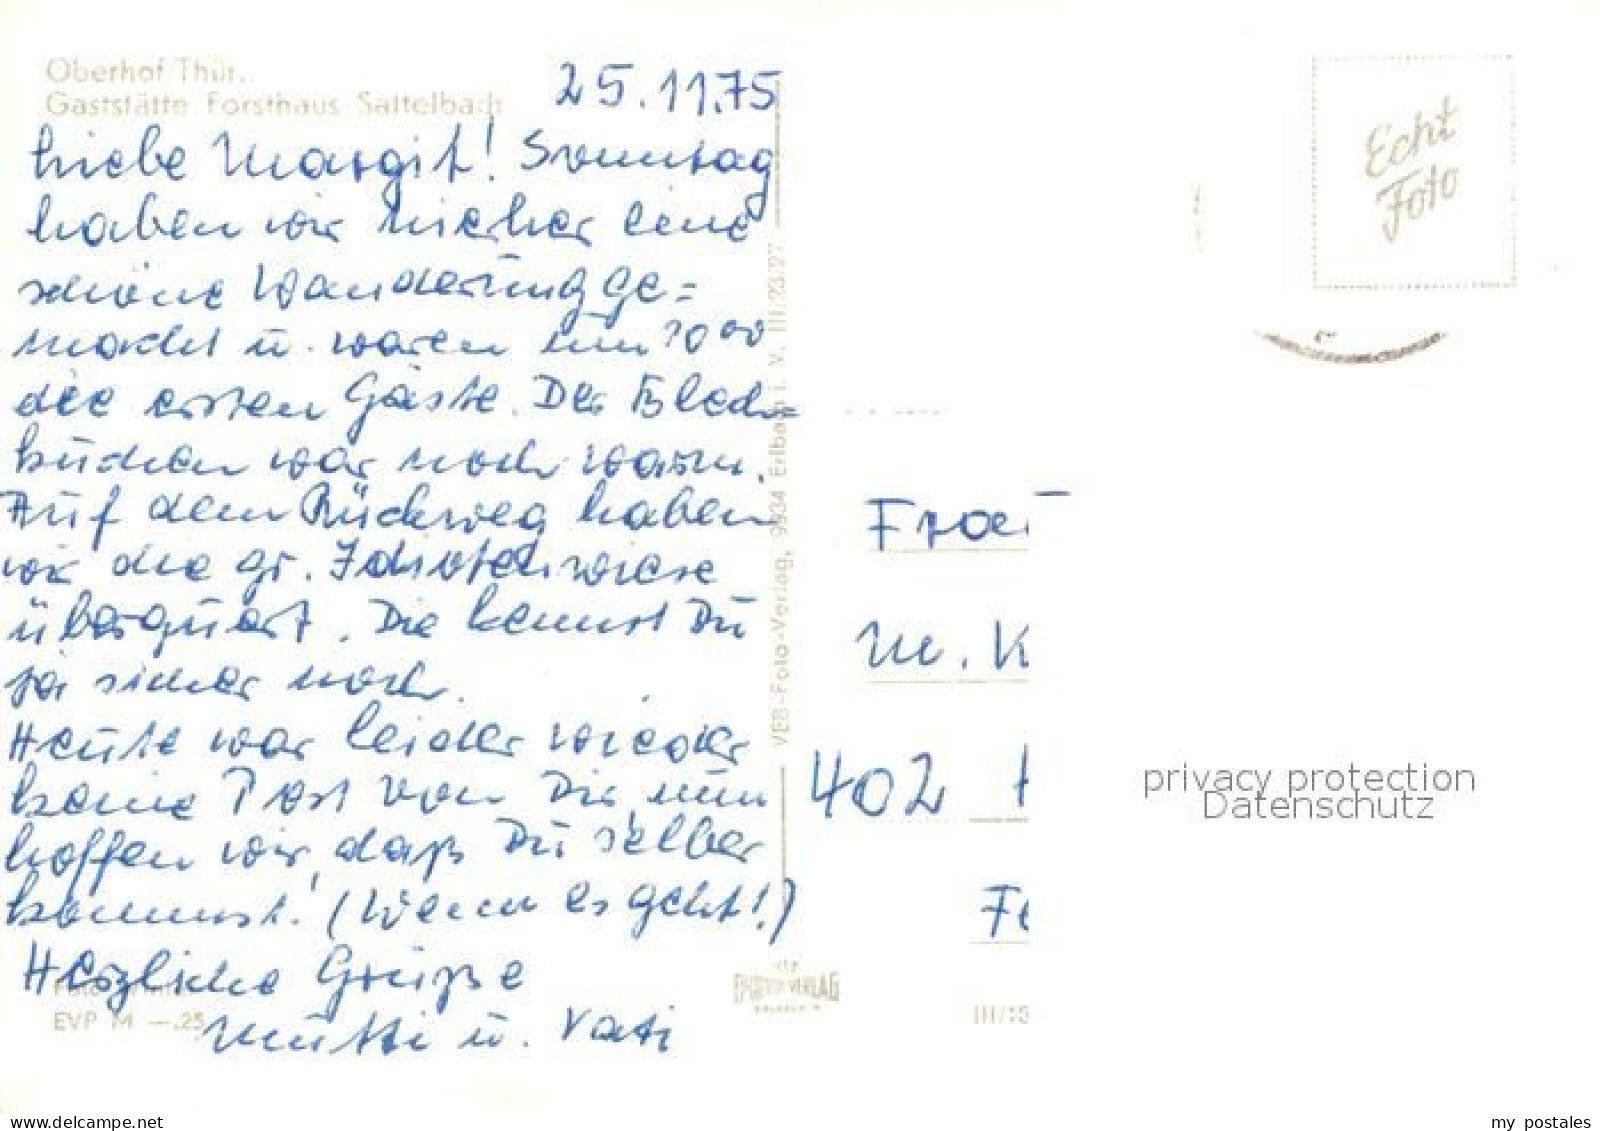 Oberhof/Thür.
Gaststätte Forsthaus Sattelbach
25.11.75
Liebe Margit! Sonntag
haben wir hierher eine
schöne Wanderung ge=
macht u. waren um 10 00
die ersten Gäste. Der Blech=
kuchen war noch warm.
Auf dem Rückweg haben
wir die gr. Idiotenwiese
überquert. Die kennst Du
ja sicher noch.
Heute war leider wieder
keine Post von Dir, nun
hoffen wir, daß Du selber
kommst! (Wenn es geht!)
Herzliche Grüße
Mutti u. Vati
EVP M —,25
VEB-Foto-Verlag, 9934 Erlbach i. V. III/23/27
Echt
Foto
Frau
M. K
402 H
Fe
III/15
privacy protection
Datenschutz
www.delcampe.net
my_postales